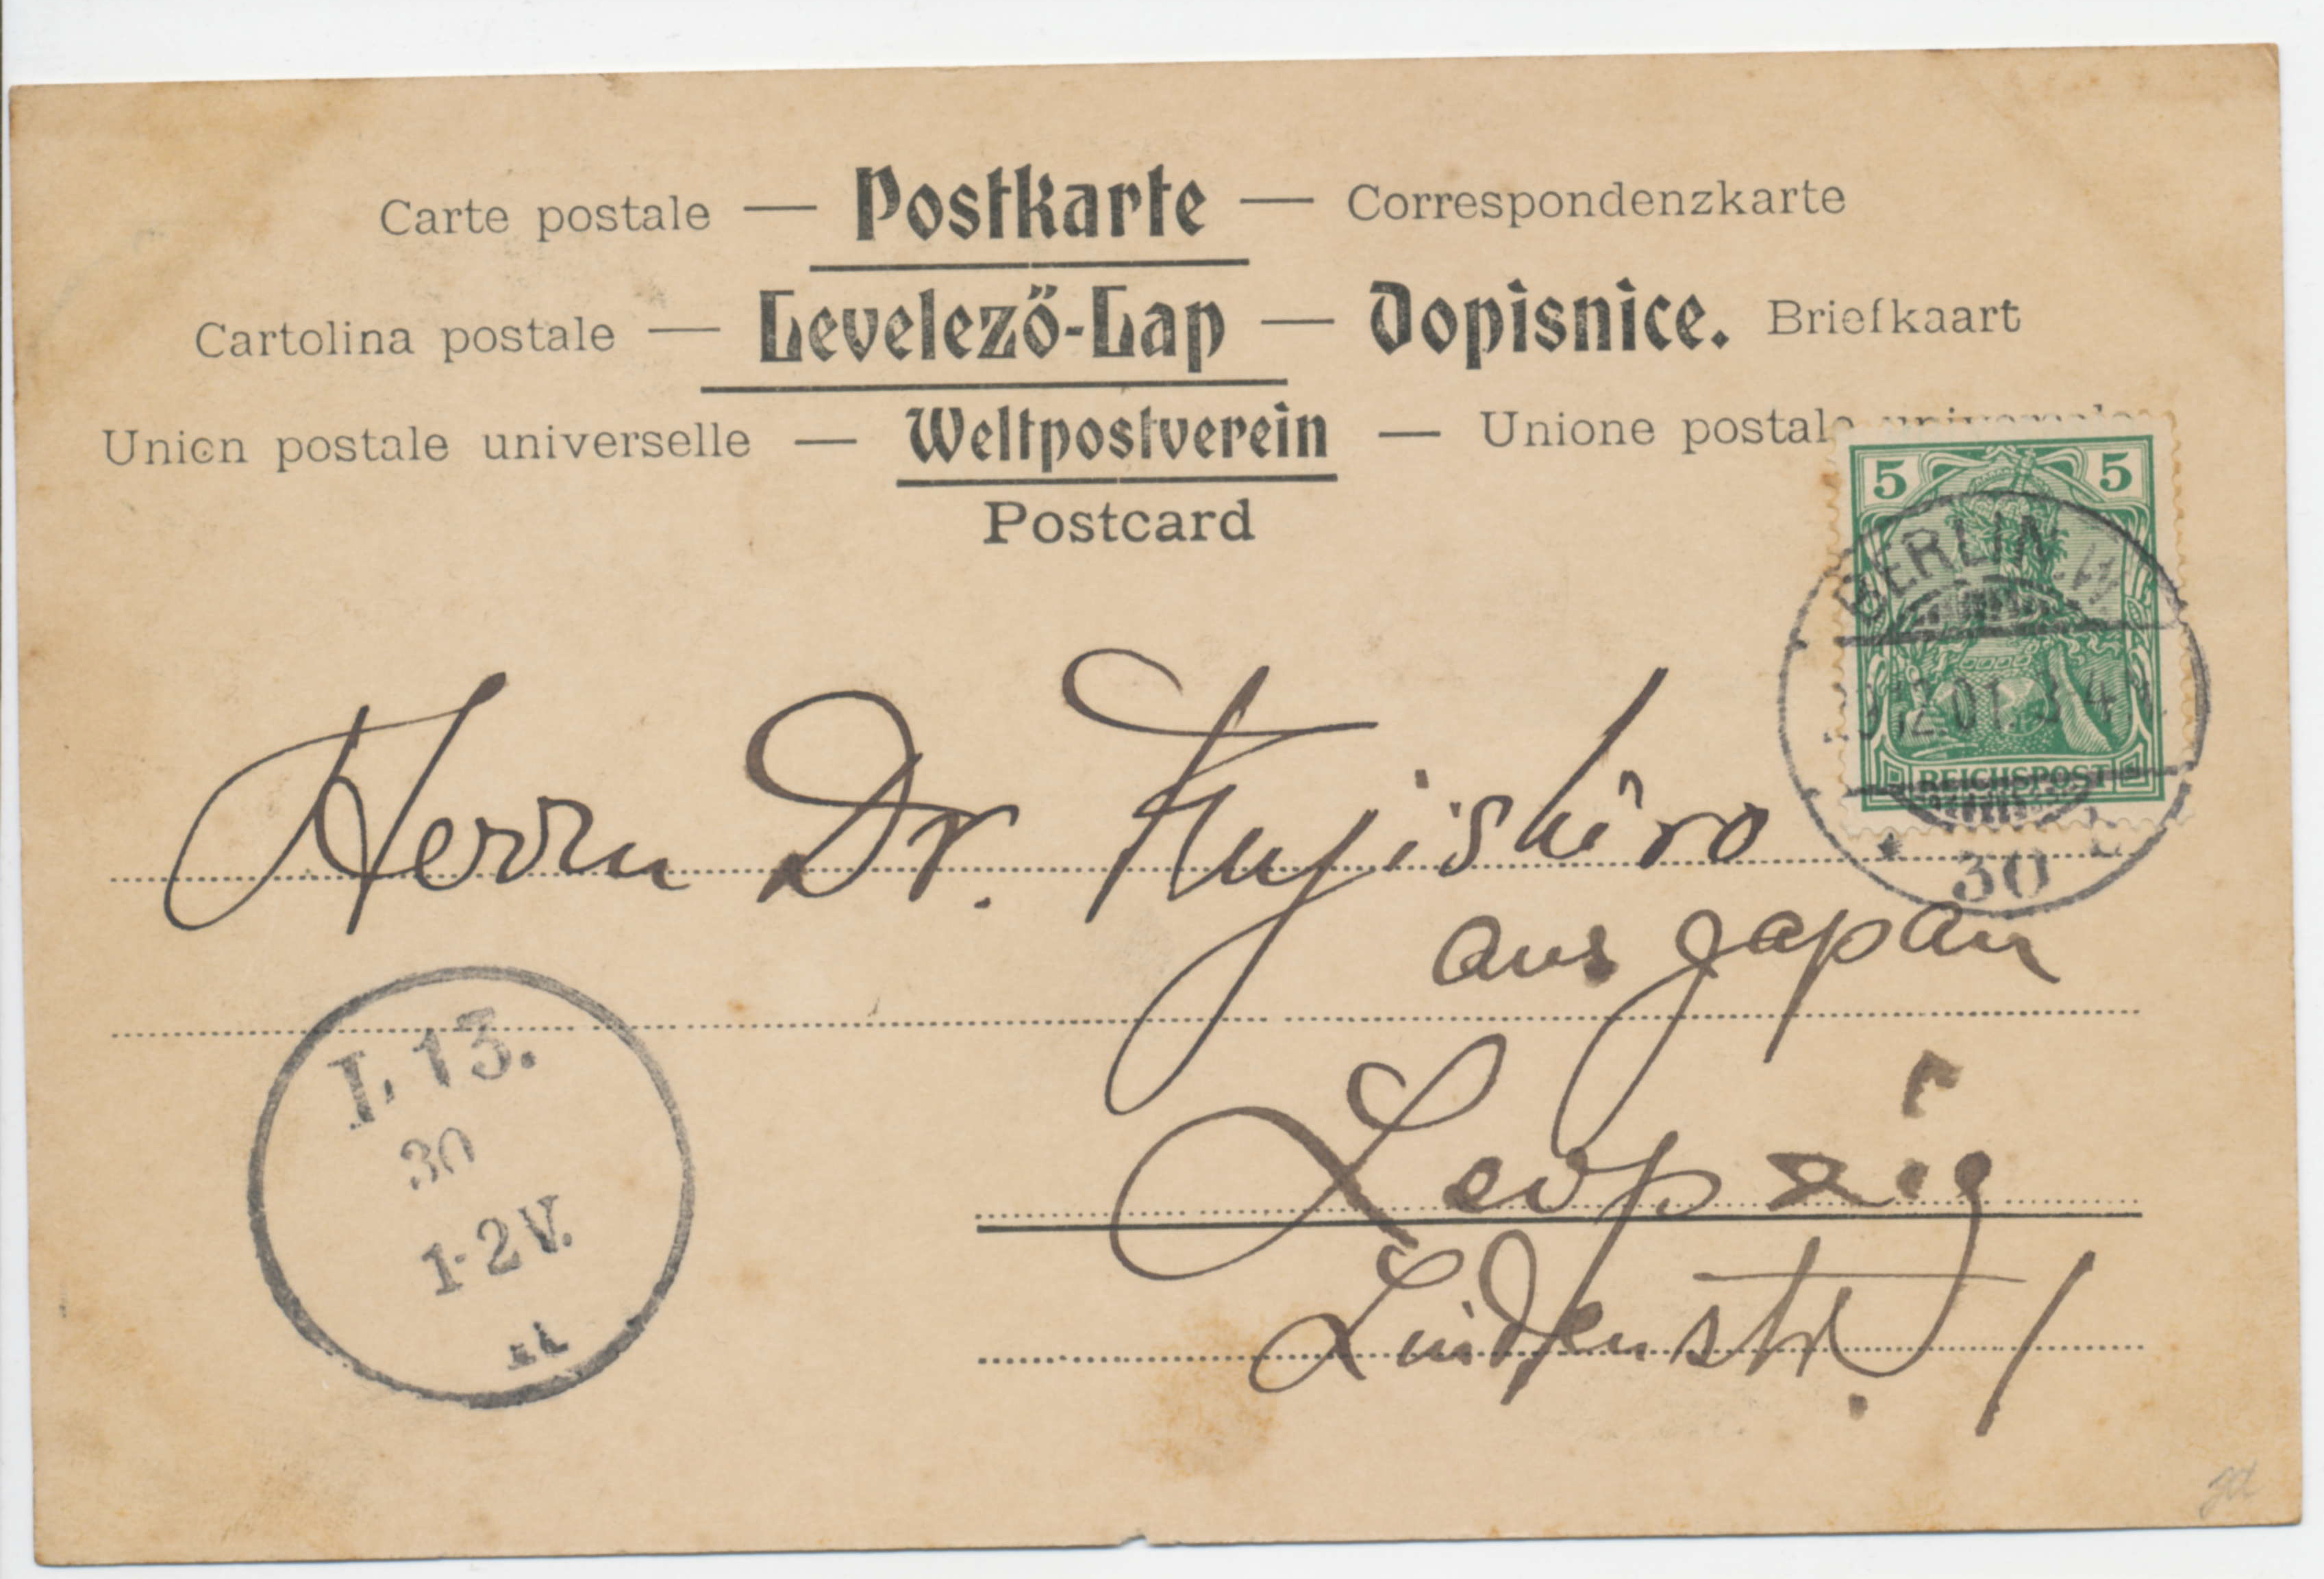 Carte postale — Postkarte — Correspondenzkarte
Cartolina postale — Levelező-Lap — Dopisnice. Briefkaart
Union postale universelle — Weltpostverein — Unione postale universale
Postcard
5 5
BERLIN.W
12.01.3-4
REICHSPOST
30
Herrn Dr. Fujishiro
aus Japan
Leipzig
Lindenstr. 1
L 13.
30
1-2V.